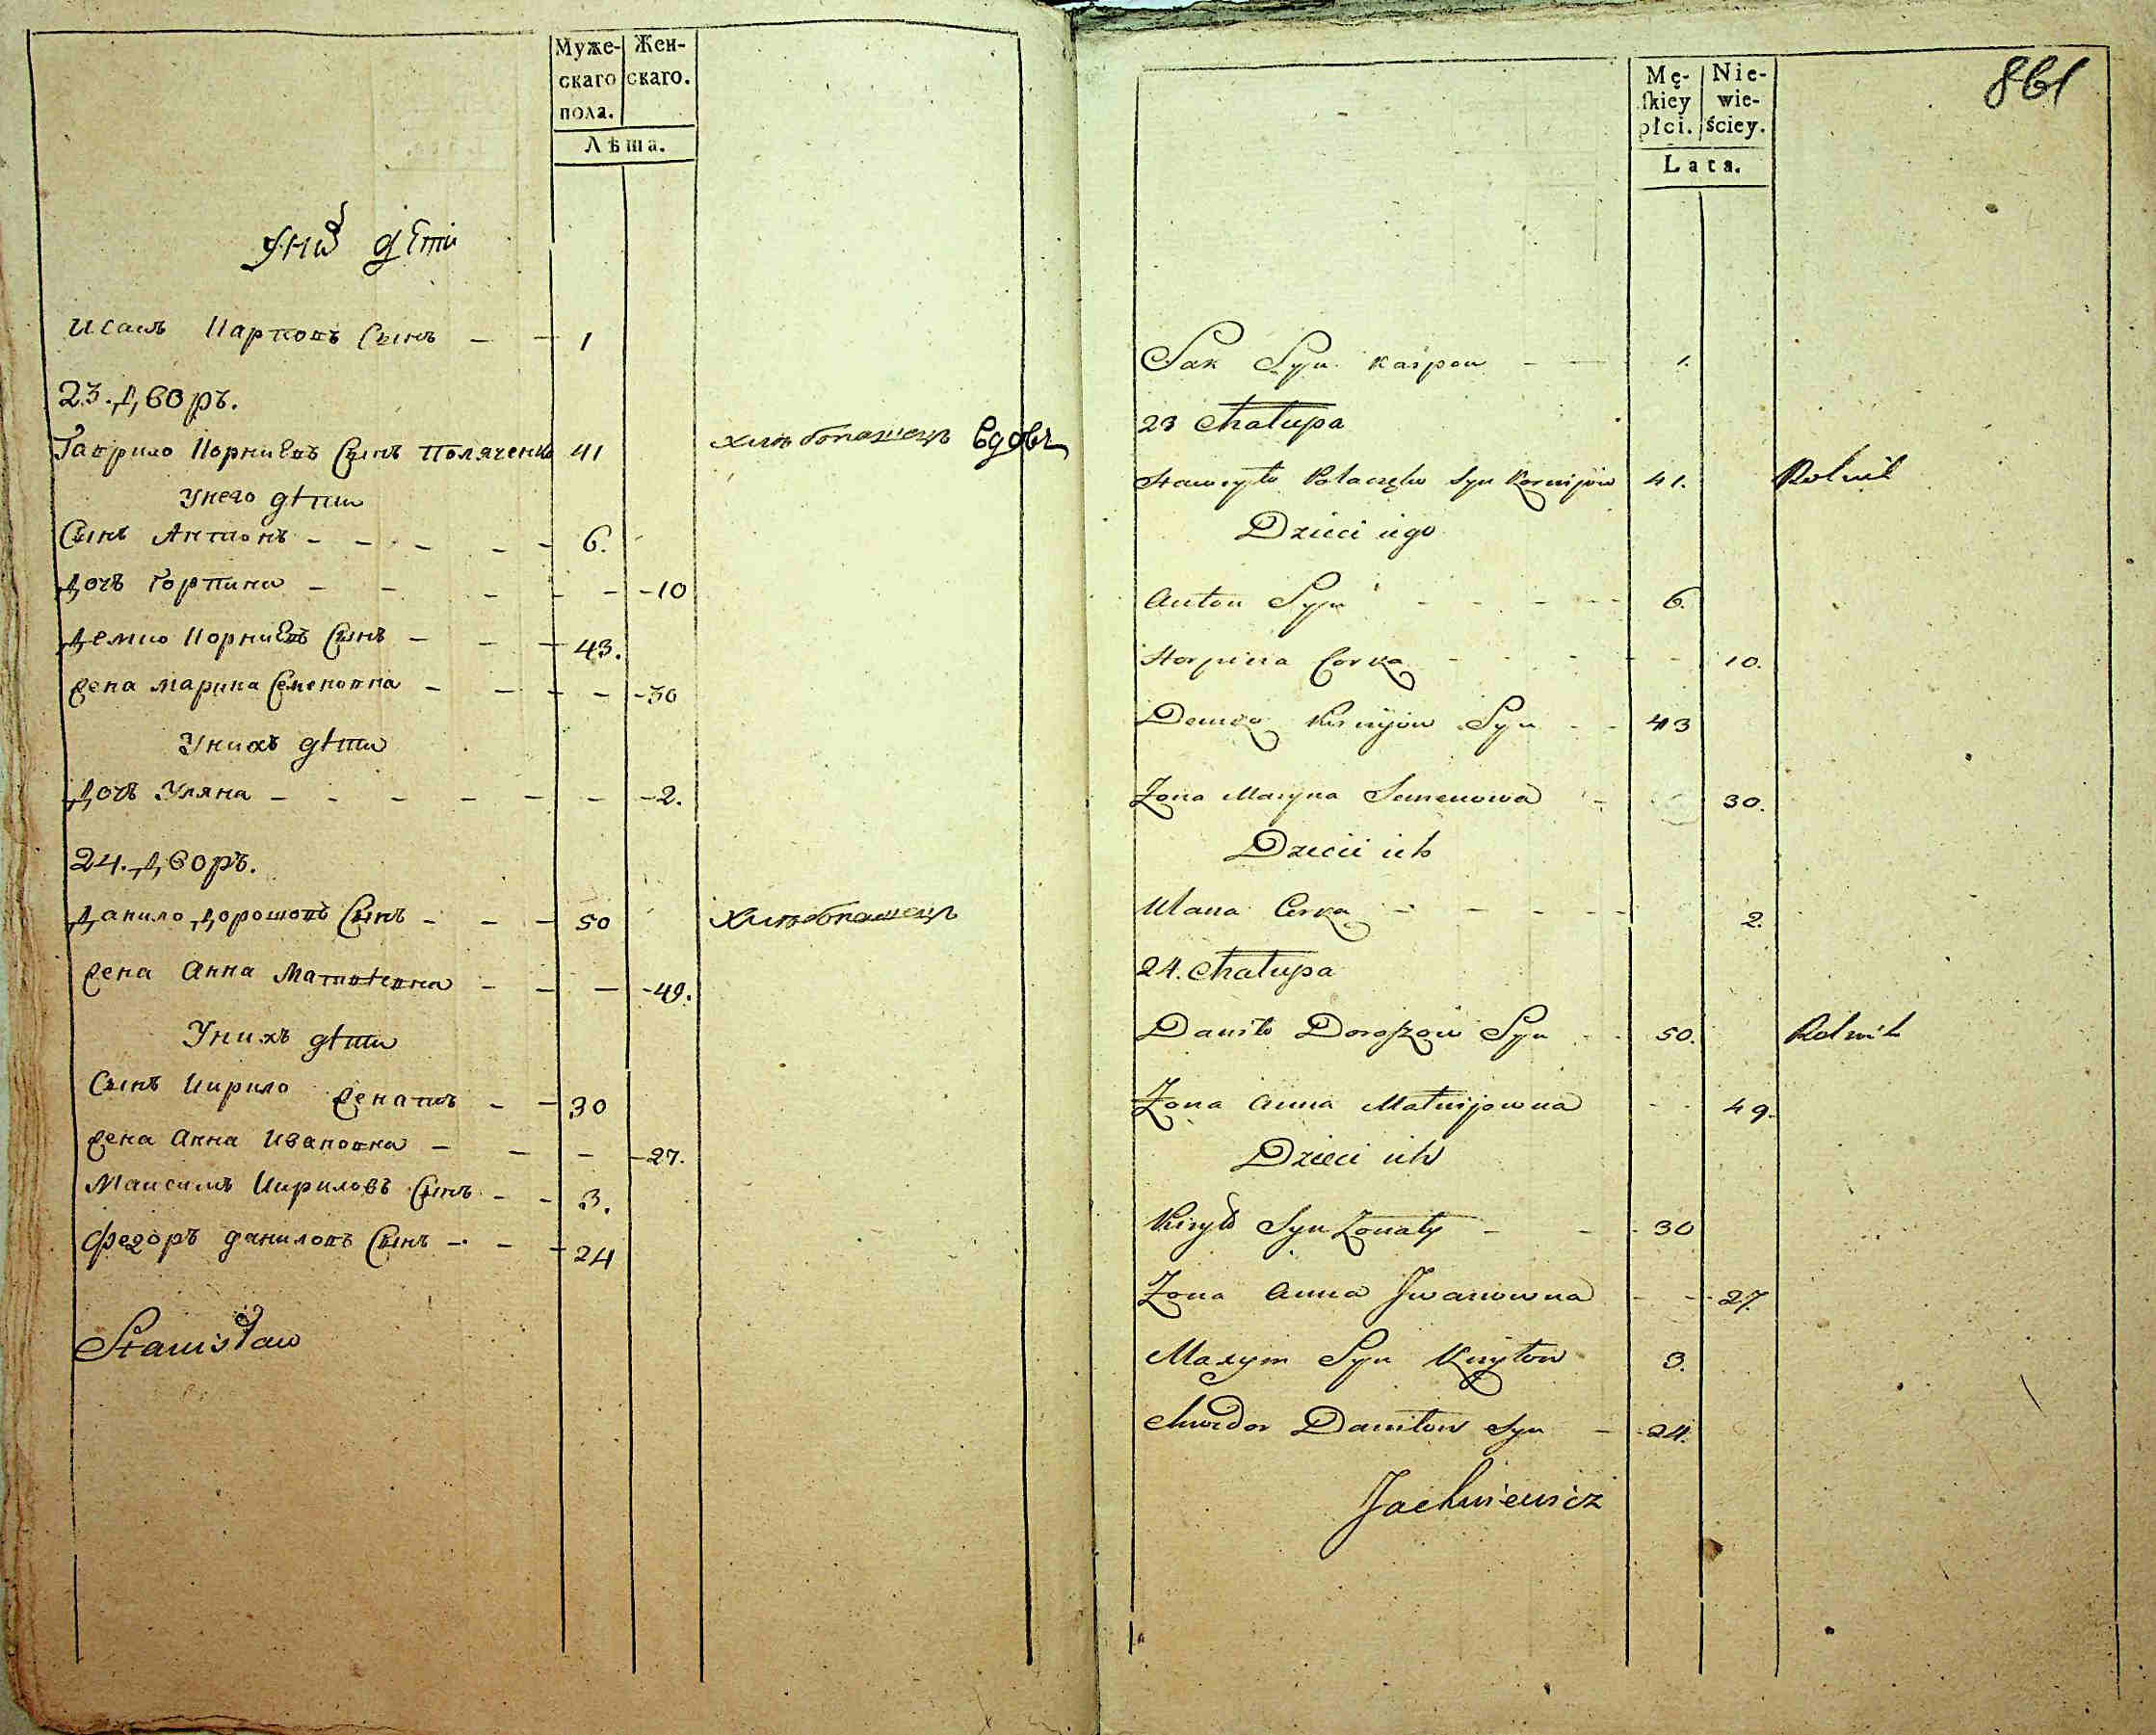 Муже- Жен-
скаго скаго.
пола.
Лѣта.
У них дѣти
Исакъ Карповъ Сынъ - - 1
23. Дворъ.
Гаврило Корниевъ Сынъ Поляченко 41 хлебопашецъ вдовъ
У него дѣти
Сынъ Антонъ - - - - - 6.
Дочь Горпина - - - - - 10
Демко Корниевъ Сынъ - - - 43.
жена Марина Семеновна - - - - - 30
У нихъ дѣти
Дочь Уляна - - - - - - - 2.
24. Дворъ.
Данило Дорошовъ Сынъ - - - 50 хлебопашецъ
жена Анна Матвѣевна - - - - 49.
У нихъ дѣти
Сынъ Кирило женатъ - - 30
жена Анна Ивановна - - - - 27.
Максимъ Кириловъ Сынъ - - 3.
Федоръ Даниловъ Сынъ - - - 24
Stanisław
861
Mę- Nie-
ſkiey wie-
płci. ściey.
Lata.
Sak Syn Karpow - - 1.
23 Chałupa
Hawryło Polaczęko Syn Kornijow 41. Rolnik
Dzieci iego
Anton Syn - - - - 6.
Horpina Corka - - - - - 10.
Demko Kornijow Syn - - 43
Zona Maryna Semenowa - 30.
Dzieci ich
Ulana Corka - - - - - 2.
24. Chałupa
Daniło Doroszow Syn - - 50. Rolnik
Zona Anna Matwijowna - - 49.
Dzieci ich
Kiryło Syn Zonaty - - - 30
Zona Anna Jwanowna - - - 27
Maxym Syn Kiryłow 3.
Chwedor Daniłow Syn - - 24.
Jachniewicz